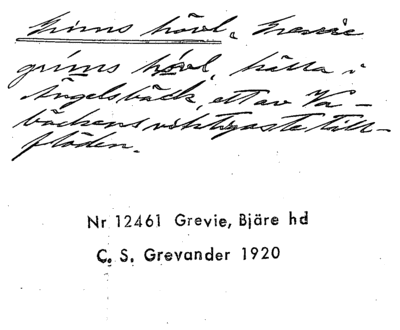 Grims hävl, Grevie
grims hävl, källa i
Ängelsbäck, ett av Va-
bäckens viktigaste till-
flöden.
Nr 12461 Grevie, Bjäre hd
C. S. Grevander 1920